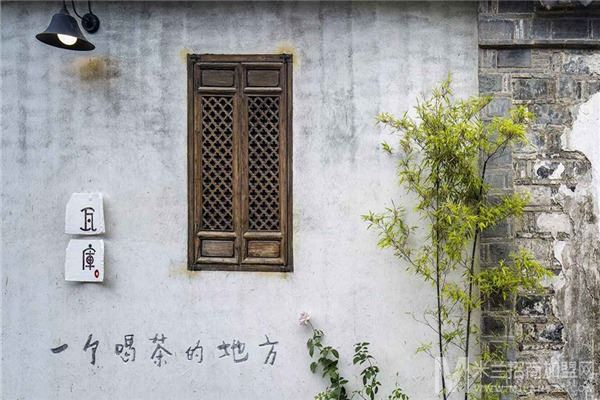 瓦
庫
一个喝茶的地方
招商加盟网